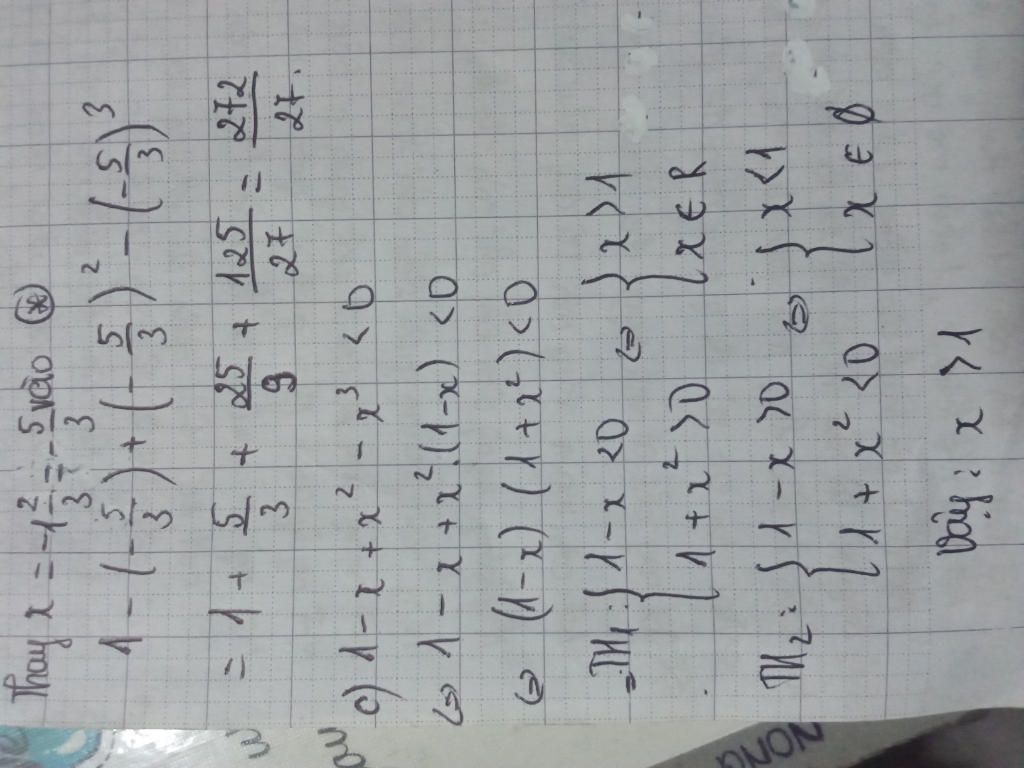 Thay x = -1 2/3 = -5/3 vào (*)
1 - (-5/3) + (-5/3)² - (-5/3)³
= 1 + 5/3 + 25/9 + 125/27 = 272/27.
c) 1 - x + x² - x³ < 0
⇔ 1 - x + x².(1-x) < 0
⇔ (1-x)(1+x²) < 0
TH1: { 1 - x < 0 ⇔ { x > 1
{ 1 + x² > 0 { x ∈ R
TH2: { 1 - x > 0 ⇔ { x < 1
{ 1 + x² < 0 { x ∈ ∅
Vậy: x > 1
NONG